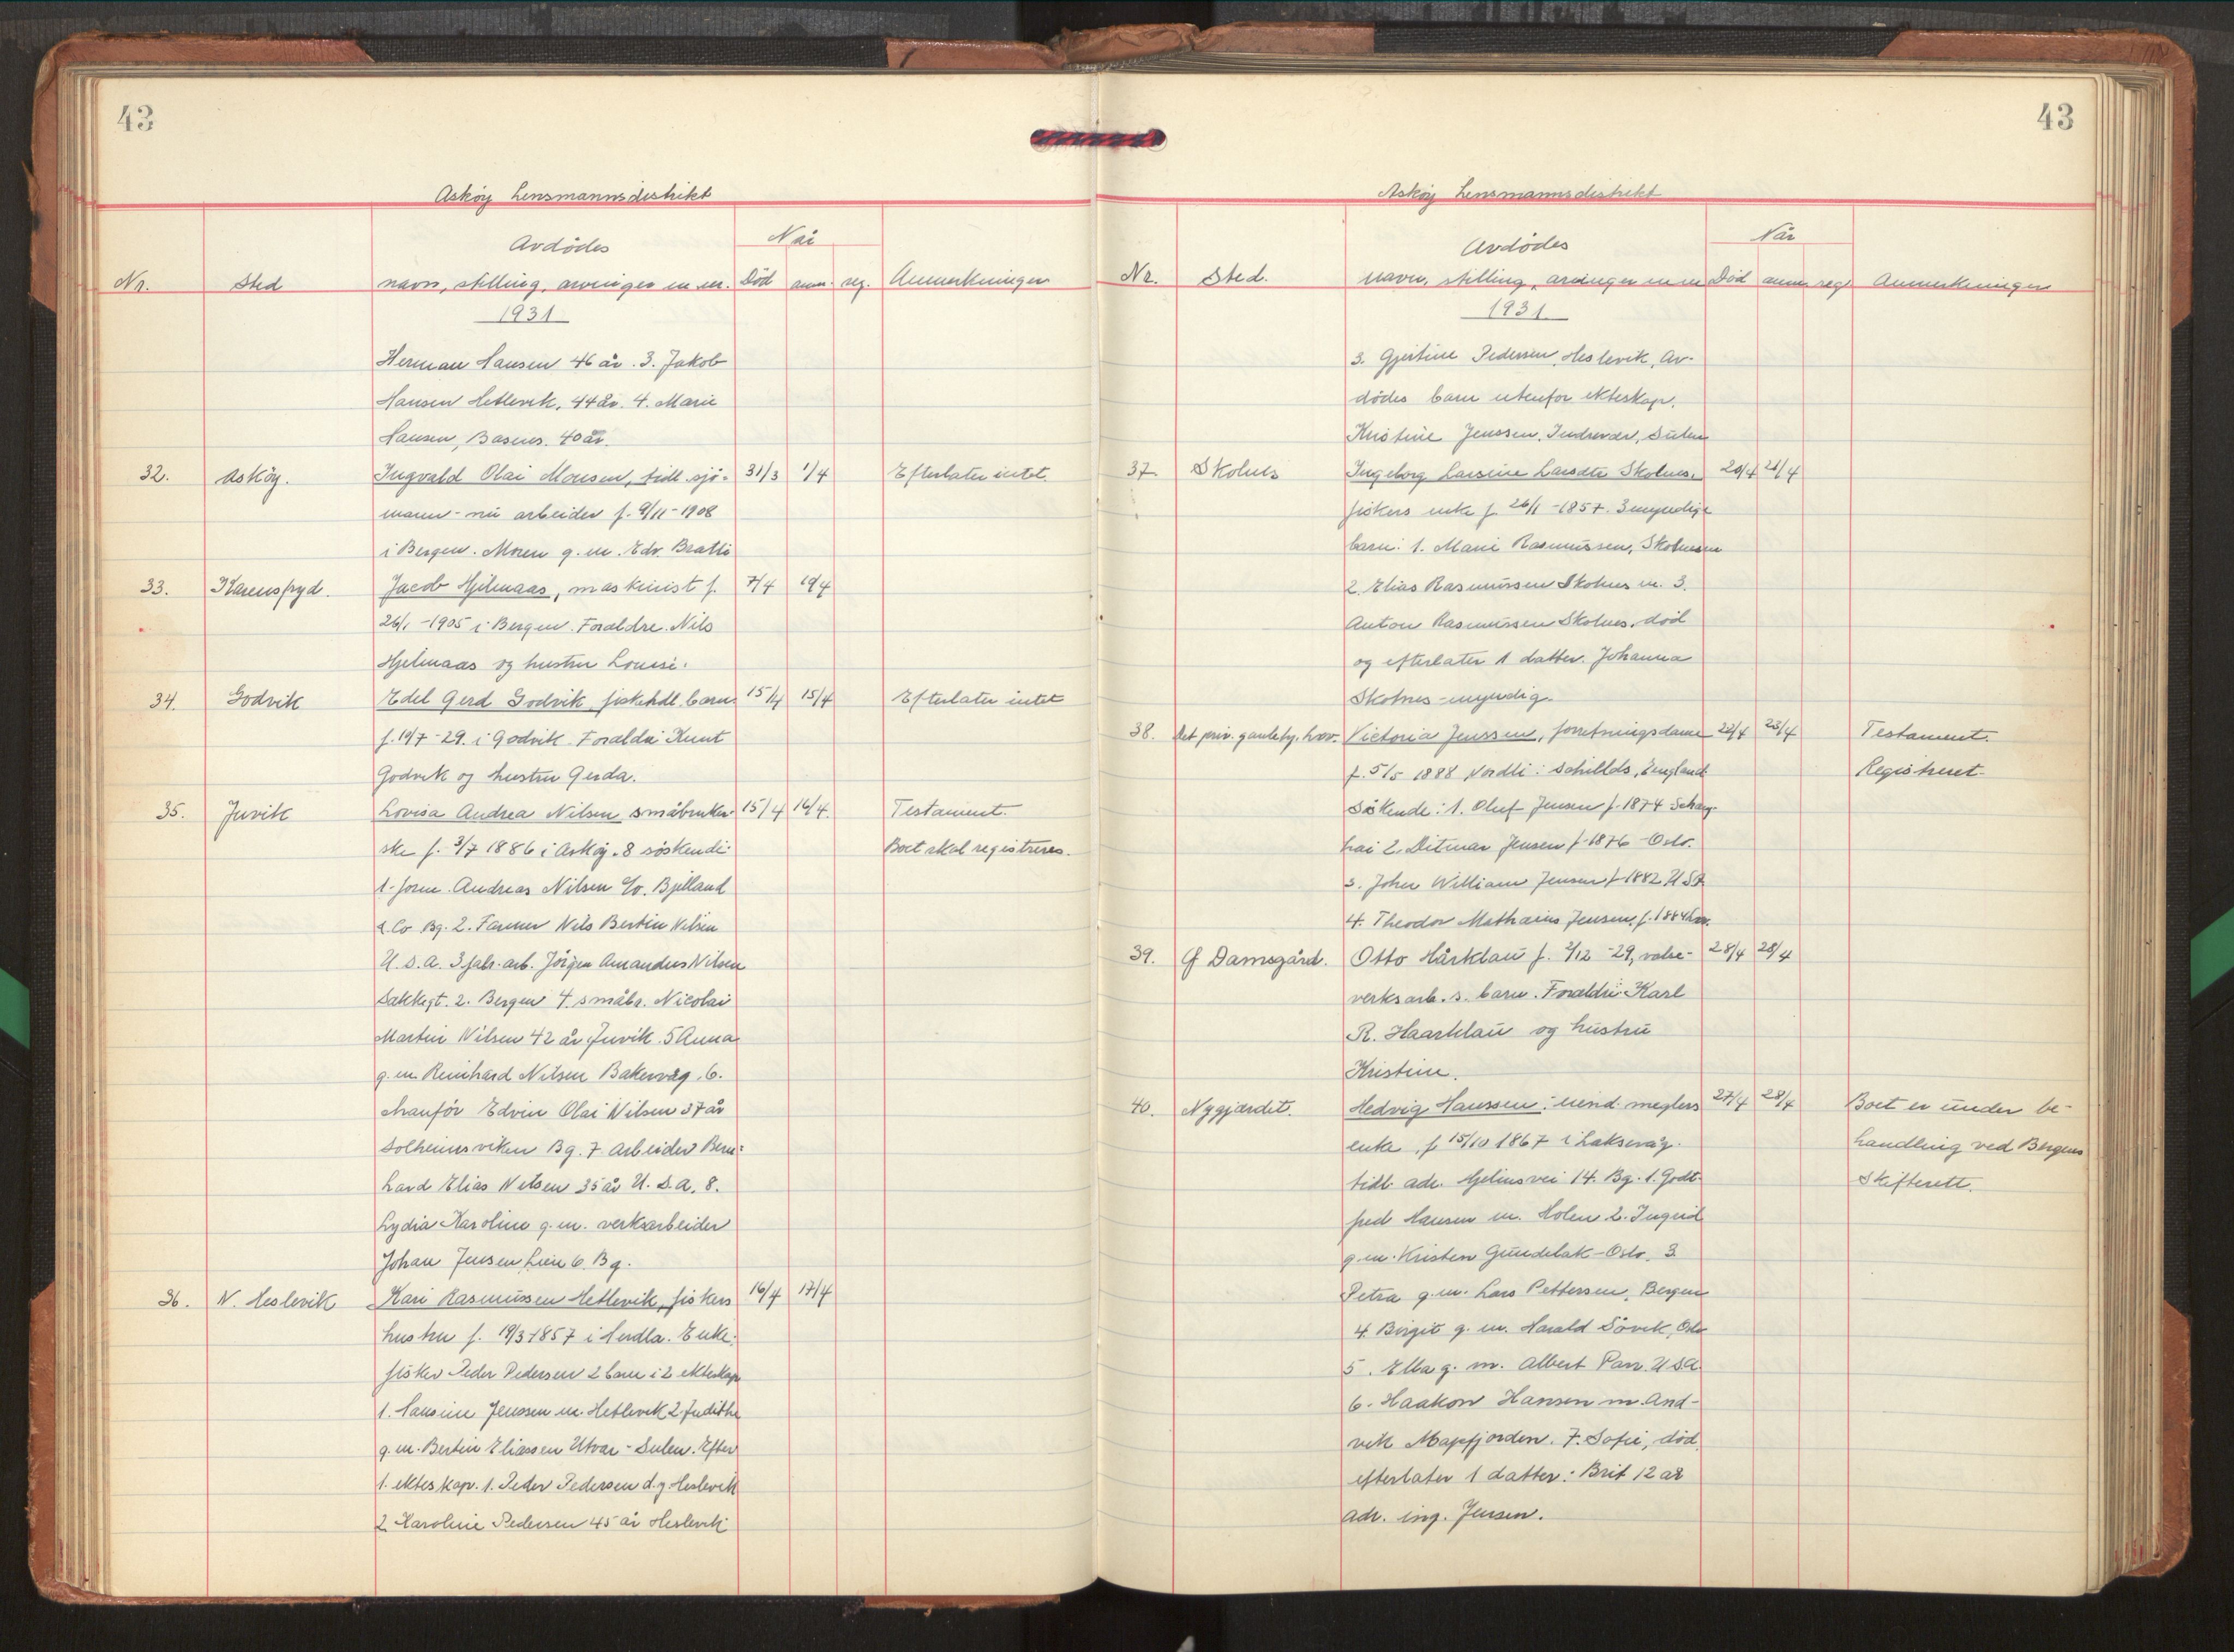 43
Askøy Lensmannsdistrikt
Avdødes
Når
Nr. Sted navn, stilling, arvinger m.m. Død anm. reg. Anmerkninger
1931
Herman Hansen 46 år. 3. Jakob
Hansen Hetlevik, 44 år. 4. Marie
Hansen, 40 år.
32. Askøy. Ingvald Olai Monsen, tidl. sjø- 31/3 1/4 Efterlater intet.
mann - nu arbeider f. 9/11-1908
i Bergen. Moren g.m. Edv. Bratli
33. Karensfryd. Jacob Hjelmaas, maskinist f. 7/4 19/4
26/1-1905 i Bergen. Foreldre. Nils
Hjelmaas og hustru Louise.
34. Godvik Edel Gerd Godvik fiskehdl. barn. 15/4 15/4 Efterlater intet
f. 19/7-29. i Godvik. Foreldre Knut
Godvik og hustru Gerda.
35. Juvik Lovisa Andrea Nilsen småbruker- 15/4 16/4. Testament.
ske f. 3/7 1886 i Askøy. 8 søskende: Boet skal registreres.
1. form. Andreas Nilsen c/o. Bjelland
& Co Bg. 2. Farmer Nils Bertin Nilsen
U.S.A. 3 fabr. arb. Jørgen Amandus Nilsen
2. Bergen 4. småbr. Nicolai
Martin Nilsen 42 år Juvik. 5 Anna
g.m. Reinhard Nilsen Bakervåg. 6.
chauffør Edvin Olai Nilsen 37 år
Solheimsviken Bg. 7. Arbeider Bern-
hard Elias Nilsen 35 år U.S.A. 8.
Lydia Karoline g.m. verksarbeider
Johan Jensen Lien 6. Bg.
36. N. Heslevik Kari Rasmussen Hetlevik, fiskers 16/4 17/4
hustru f. 19/3 1857 i Herdla. Enke.
fisker Peder Pedersen 2 barn i 2 ekteskap
1. Hansine Jenssen m. Hetlevik 2 Judithe
g.m. Bertin Eliassen Utvær - Sulen. Efter
1. ekteskap. 1. Peder Pedersen d.y. Heslevik
2 Karoline Pedersen 45 år Heslevik
43
Askøy Lensmannsdistrikt
Avdødes
Når
Nr. Sted. navn, stilling, arvinger m.m Død anm reg Anmerkninger
1931.
3. Gjertine Pedersen, Heslevik, Av-
dødes barn utenfor ekteskap.
Kristine Jenssen, Indrevær, Sulen
37. Skolnes Ingeborg Larsine Larsdtr Skolnes. 20/4 21/4
fiskers enke f. 26/1-1857. 3 myndige
barn: 1. Marie Rasmussen, Skolnes m
2. Elias Rasmussen Skolnes m. 3.
Anton Rasmussen Skolnes, død
og efterlater 1 datter. Johanna
Skolnes - myndig.
38. Det priv. gamlehj. Victoria Jenssen, forretningsdame 22/4 23/4 Testament.
f. 5/5 1888 Nordli: Schillds, England Registreret.
Søskende: 1. Oluf Jensen f. 1874 Schang-
hai 2. Ditmar Jensen f. 1876 - Oslo.
3. John William Jensen f. 1882 USA
4. Theodor Mathæus Jensen, f. 1884
39. Gf Damsgård. Otto Hårklau f. 2/12-29, valse- 28/4 28/4
verksarb. s. barn. Foreldre: Karl
R. Haarklau og hustru
Kristine.
40. Nygjærdet. Hedvig Hanssen: eiend. meglers 27/4 28/4 Boet er under be-
enke, f. 15/10 1867 i Laksevåg. handling ved Bergens
tidl. adr. vei 14. Bg. 1. Godt- Skifterett.
fred Hansen m. Holen 2. Ingrid
g.m. Kristen - Oslo. 3.
Petra g.m. Lars Pettersen, Bergen
4. Birgit g.m. Harald Søvik, Oslo
5. Elba g.m. Albert Parr. U.S.A.
6. Haakon Hansen m. And-
vik Mapfjorden. 7. Sofie, død,
efterlater 1 datter: Brit 12 år
adr. ing. Jensen.